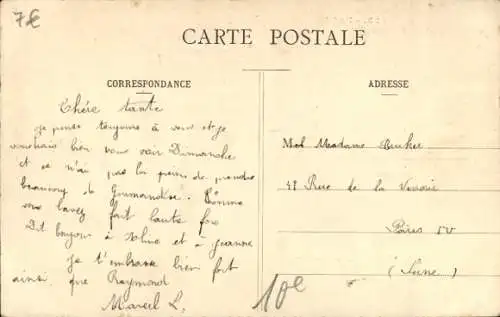 7€
CARTE POSTALE
CORRESPONDANCE
ADRESSE
Chére tante
je pense toujours à vous et je
voudrais bien vous voir Dimanche
et ce n'ai pas la peine de prendre
beaucoup de Gourmandise. Comme
vous l'avez fait l'autre fois
Dit bonjour à Aline et à Jeanne
je t'embrasse bien fort
ainsi que Raymond
Marcel L.
Madame
49 Rue de la
Paris XV
(Seine)
10€